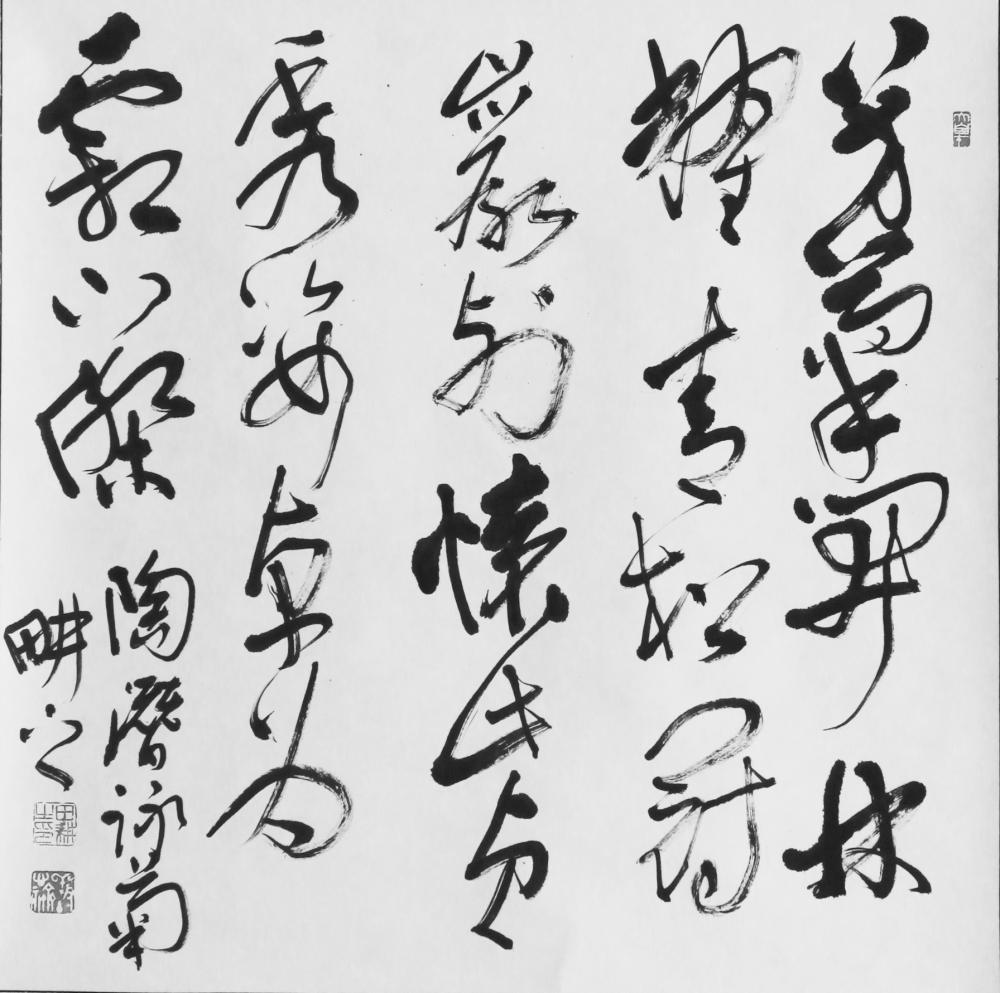 芳菊開林
耀青松冠
巖列懷此貞
秀姿卓為
霜下傑
陶潛詠菊
畊之